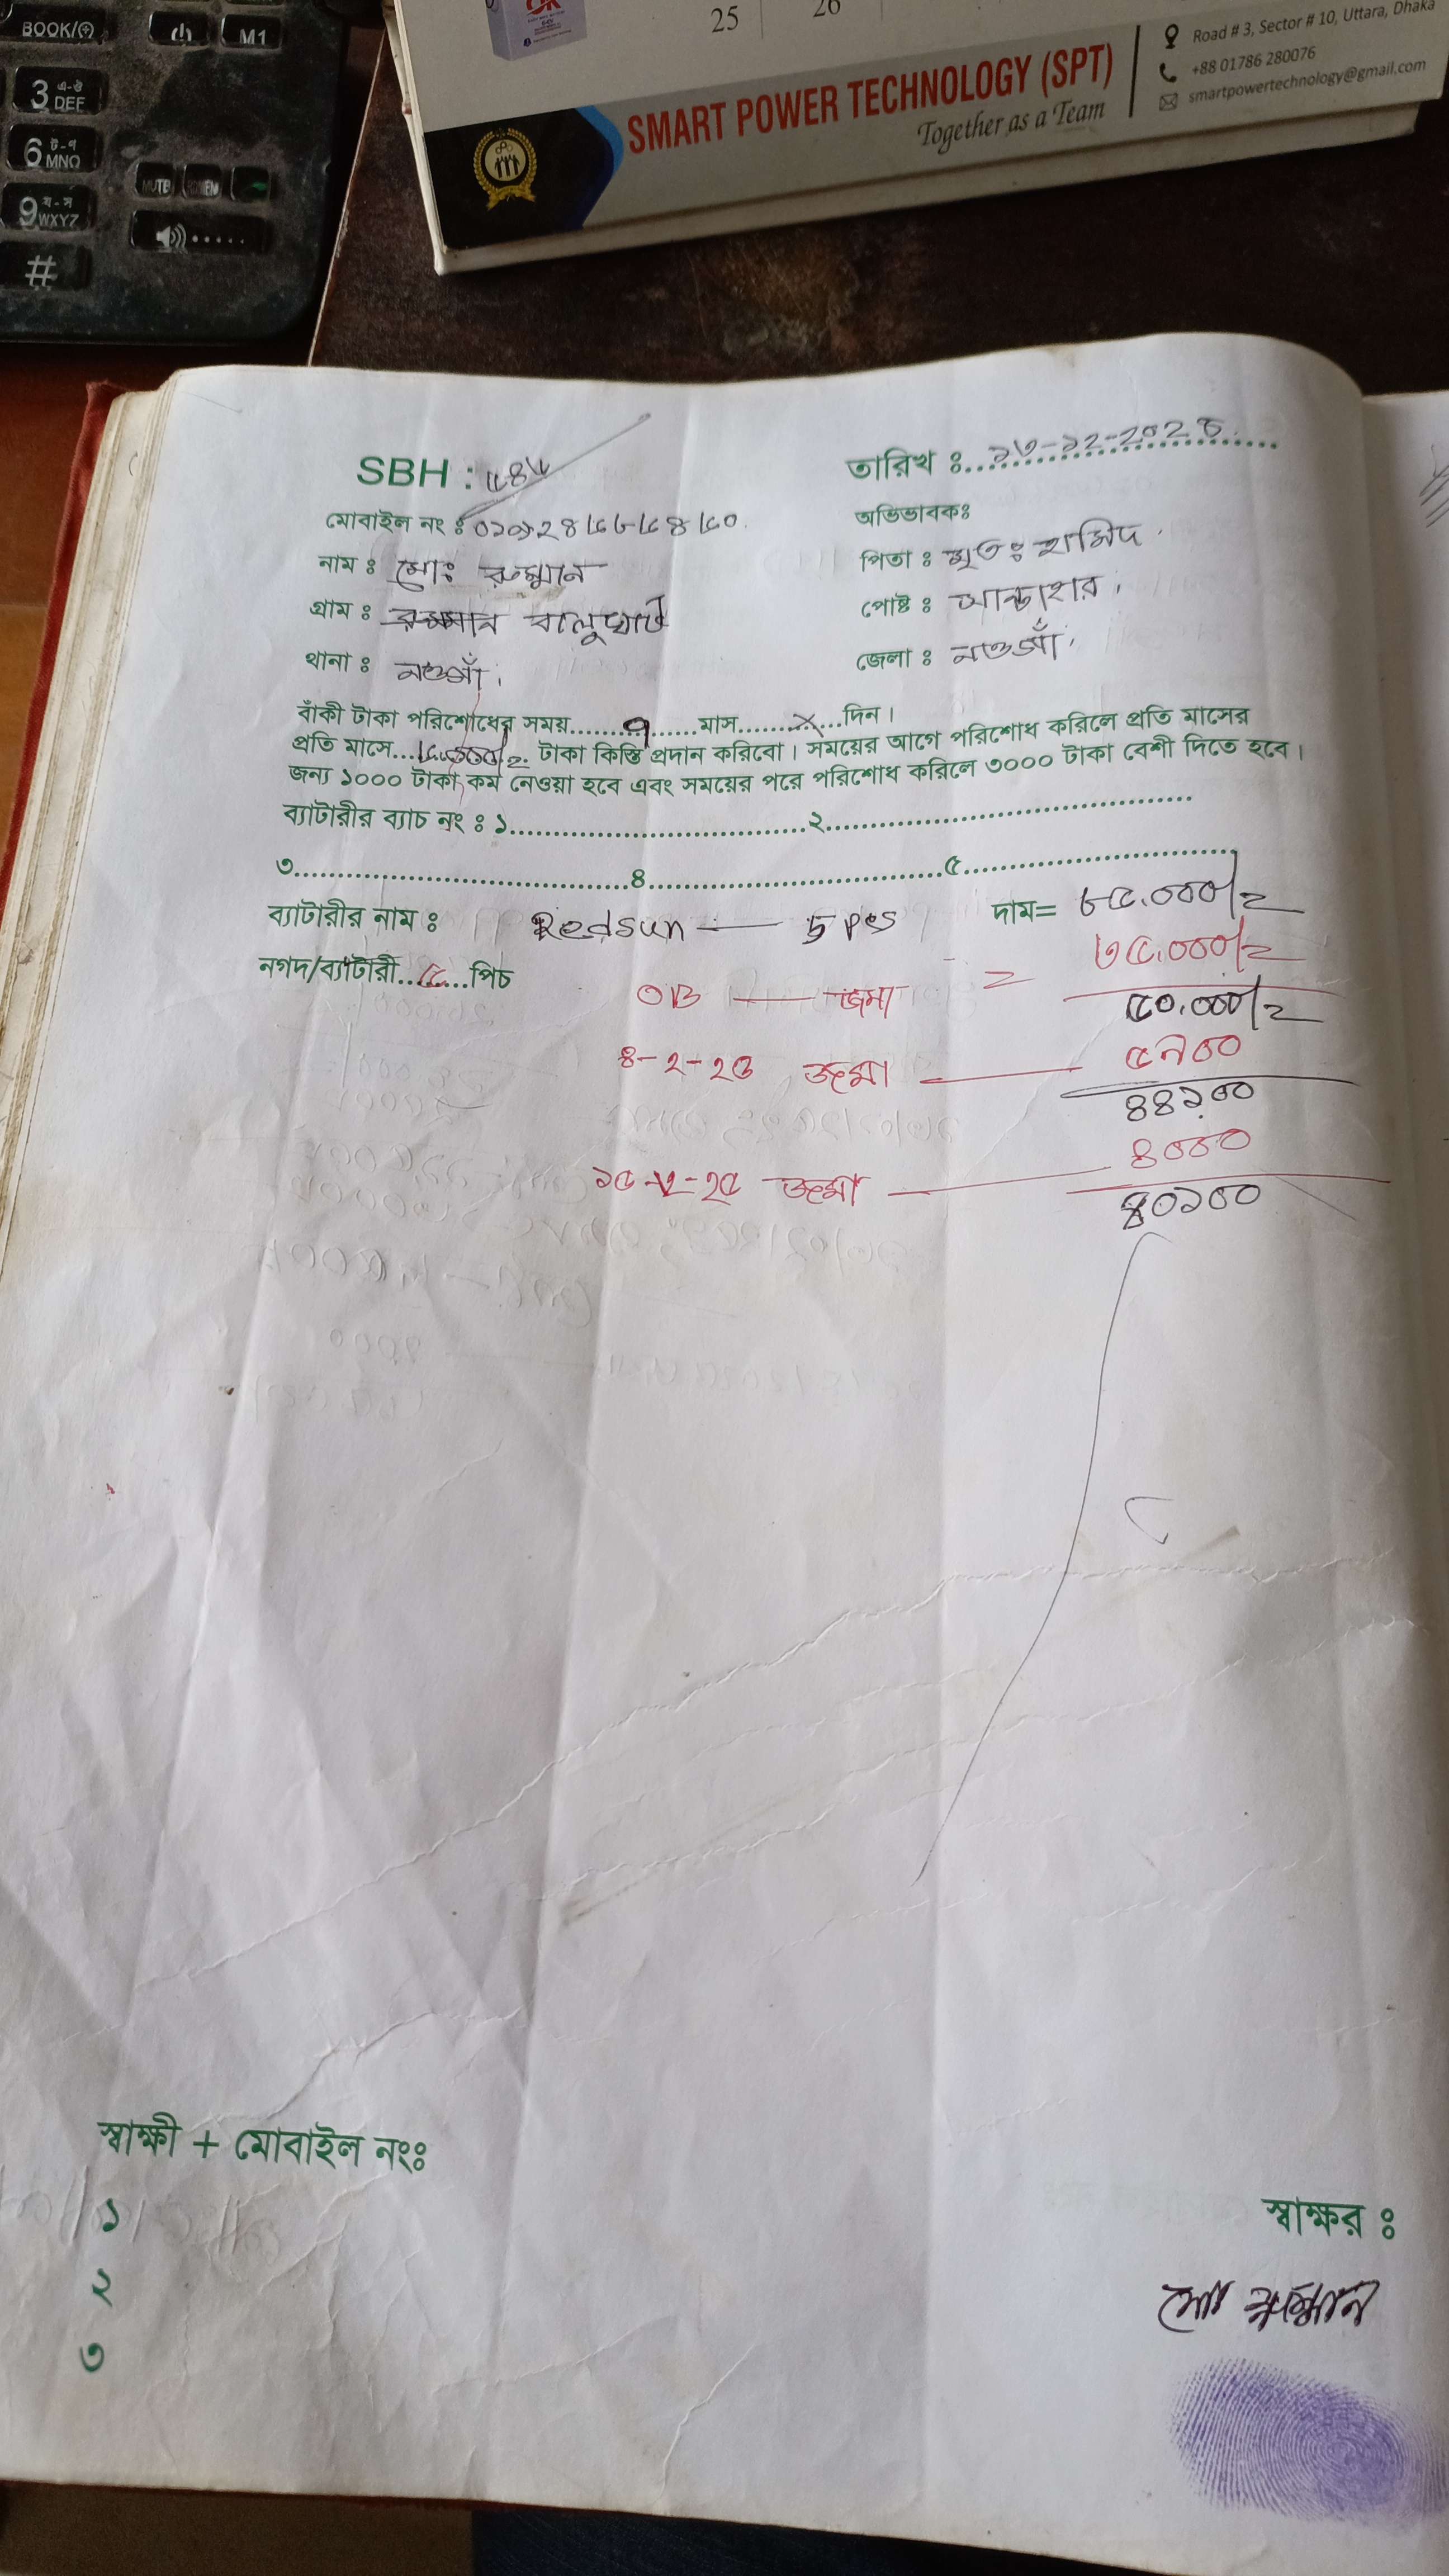 BOOK/
M1
3 এ-ঔ DEF
6 ট-ণ MNO
MUTE
9 য-স WXYZ
#
25 26
SMART POWER TECHNOLOGY (SPT)
Together as a Team
Road # 3, Sector # 10, Uttara, Dhaka
+88 01786 280076
smartpowertechnology@gmail.com
SBH : ৫৪৬
তারিখ ঃ
মোবাইল নং ঃ
অভিভাবকঃ
নাম ঃ মোঃ রুম্মান
পিতা ঃ মৃতঃ হামিদ
গ্রাম ঃ বালুঘাট
পোষ্ট ঃ সান্তাহার
থানা ঃ নওগাঁ
জেলা ঃ নওগাঁ
বাঁকী টাকা পরিশোধের সময়........৭......মাস........×....দিন।
প্রতি মাসে...৫০০০/=. টাকা কিস্তি প্রদান করিবো। সময়ের আগে পরিশোধ করিলে প্রতি মাসের
জন্য ১০০০ টাকা কম নেওয়া হবে এবং সময়ের পরে পরিশোধ করিলে ৩০০০ টাকা বেশী দিতে হবে।
ব্যাটারীর ব্যাচ নং ঃ ১..........২..........
৩..........৪..........৫..........
ব্যাটারীর নাম ঃ Redsun — 5 pcs দাম= ৮৫.০০০/=
নগদ/ব্যাটারী..৫...পিচ
OB — জমা = ৩৫.০০০/=
৫০.০০০/=
৪-২-২৫ জমা — ৫৯০০
৪৪১০০
১৫-২-২৫ জমা — ৪০০০
৪০১০০
স্বাক্ষী + মোবাইল নংঃ
১
২
৩
স্বাক্ষর ঃ
মোঃ রুম্মান